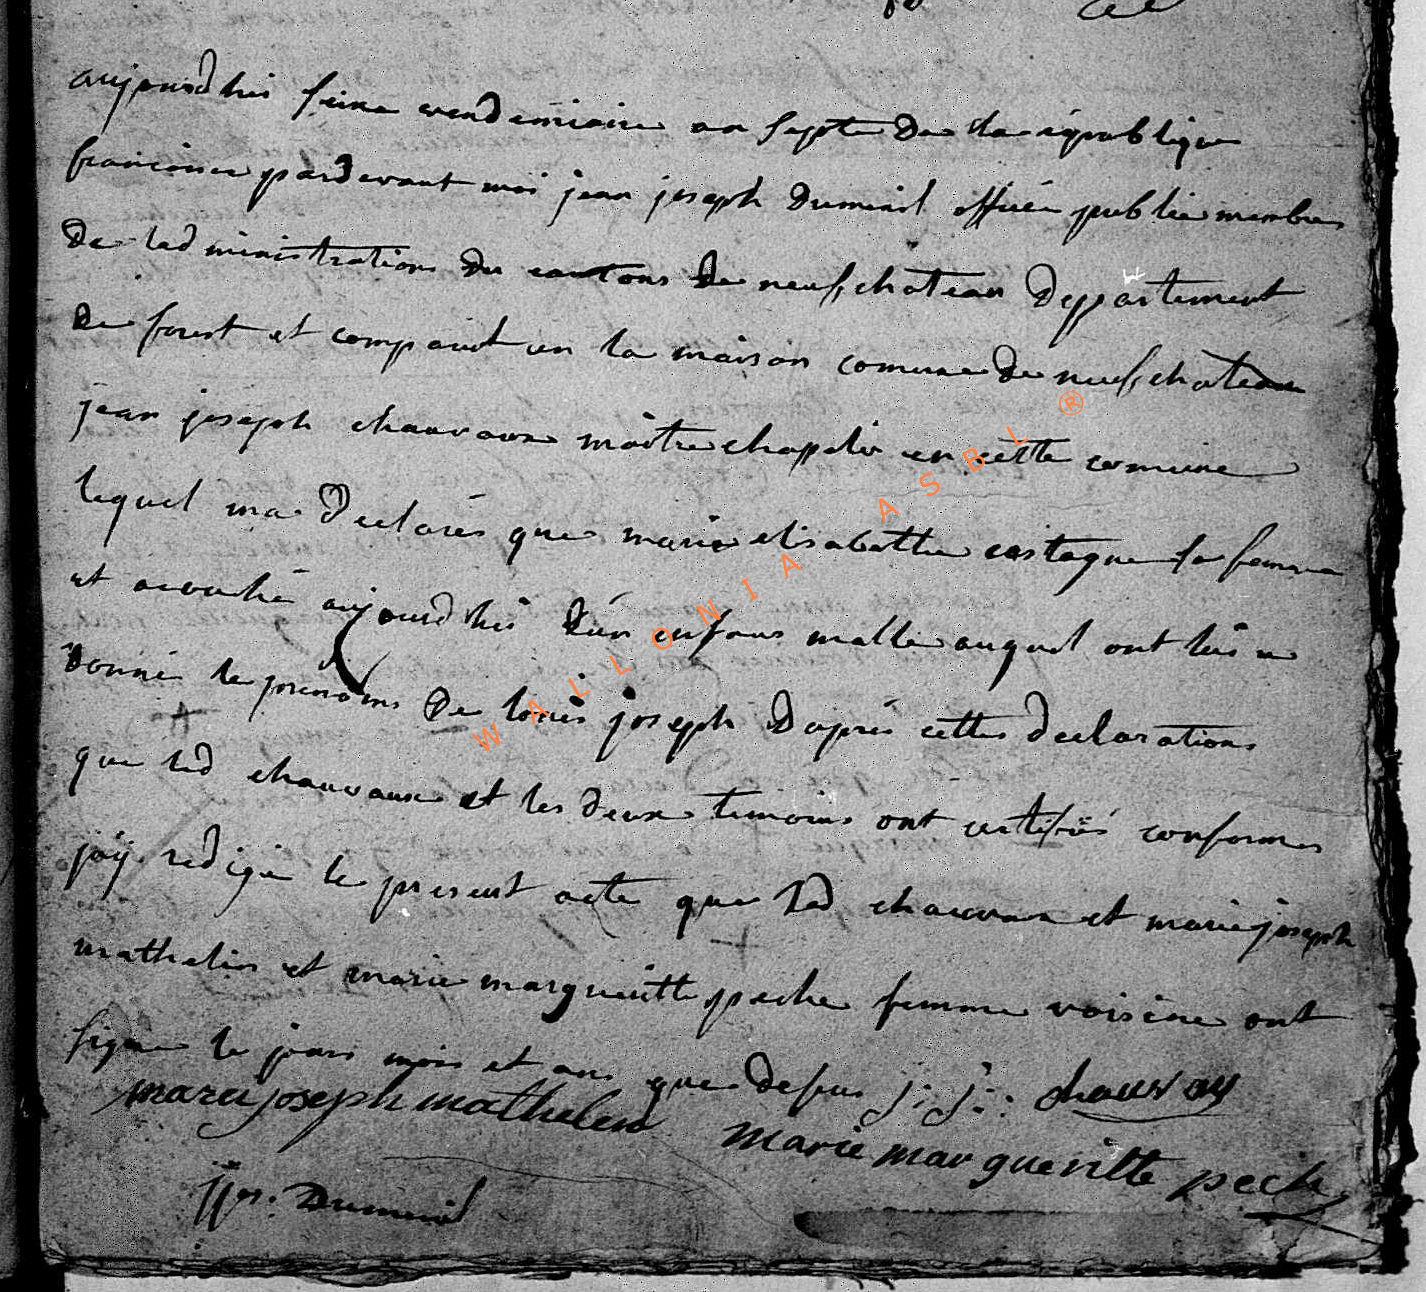 aujourdhui seize vendemiaire an septe de la république
francoise pardevant moi jean joseph Dumenil officie public membre
de lad ministration du cantons de neufchateau Departement
de forest et comparut en la maison comune de neufchateau
jean joseph chauvaux maitre chapelier en cette comune
lequel ma Declarés que marie elisabethe castagne sa femme
et acouché aujourdhui d'un enfans malle auquel ont lui a
donné le prenoms De louis joseph D'aprés cette declarations
que led chauvaux et les deux temoins ont certifiés conforme
j'aÿ redigé le present acte que led chauvaux et marie joseph
mathelin et marie margueritte peche femme voisine ont
signé le jour mois et ans que desus j: j: chauvay
marie joseph mathelin
marie margueritte peche
jj. Dumenil
WALLONIA ASBL ®